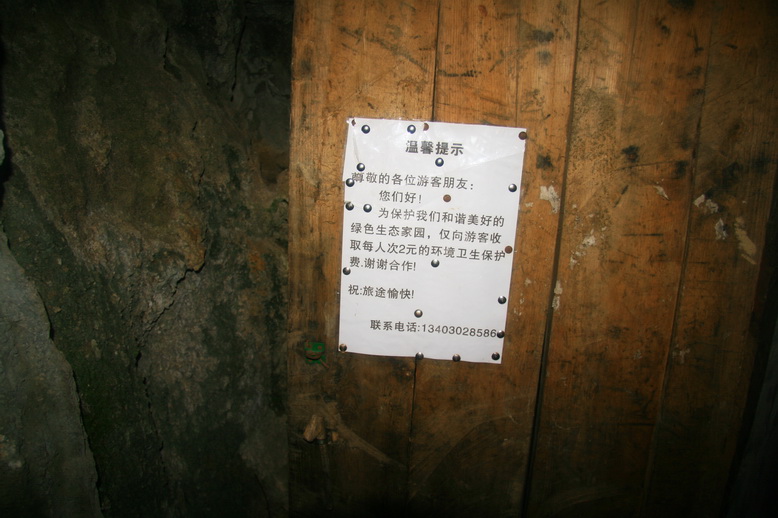 温馨提示
尊敬的各位游客朋友：
您们好！
为保护我们和谐美好的
绿色生态家园，仅向游客收
取每人次2元的环境卫生保护
费.谢谢合作!
祝:旅途愉快!
联系电话:13403028586